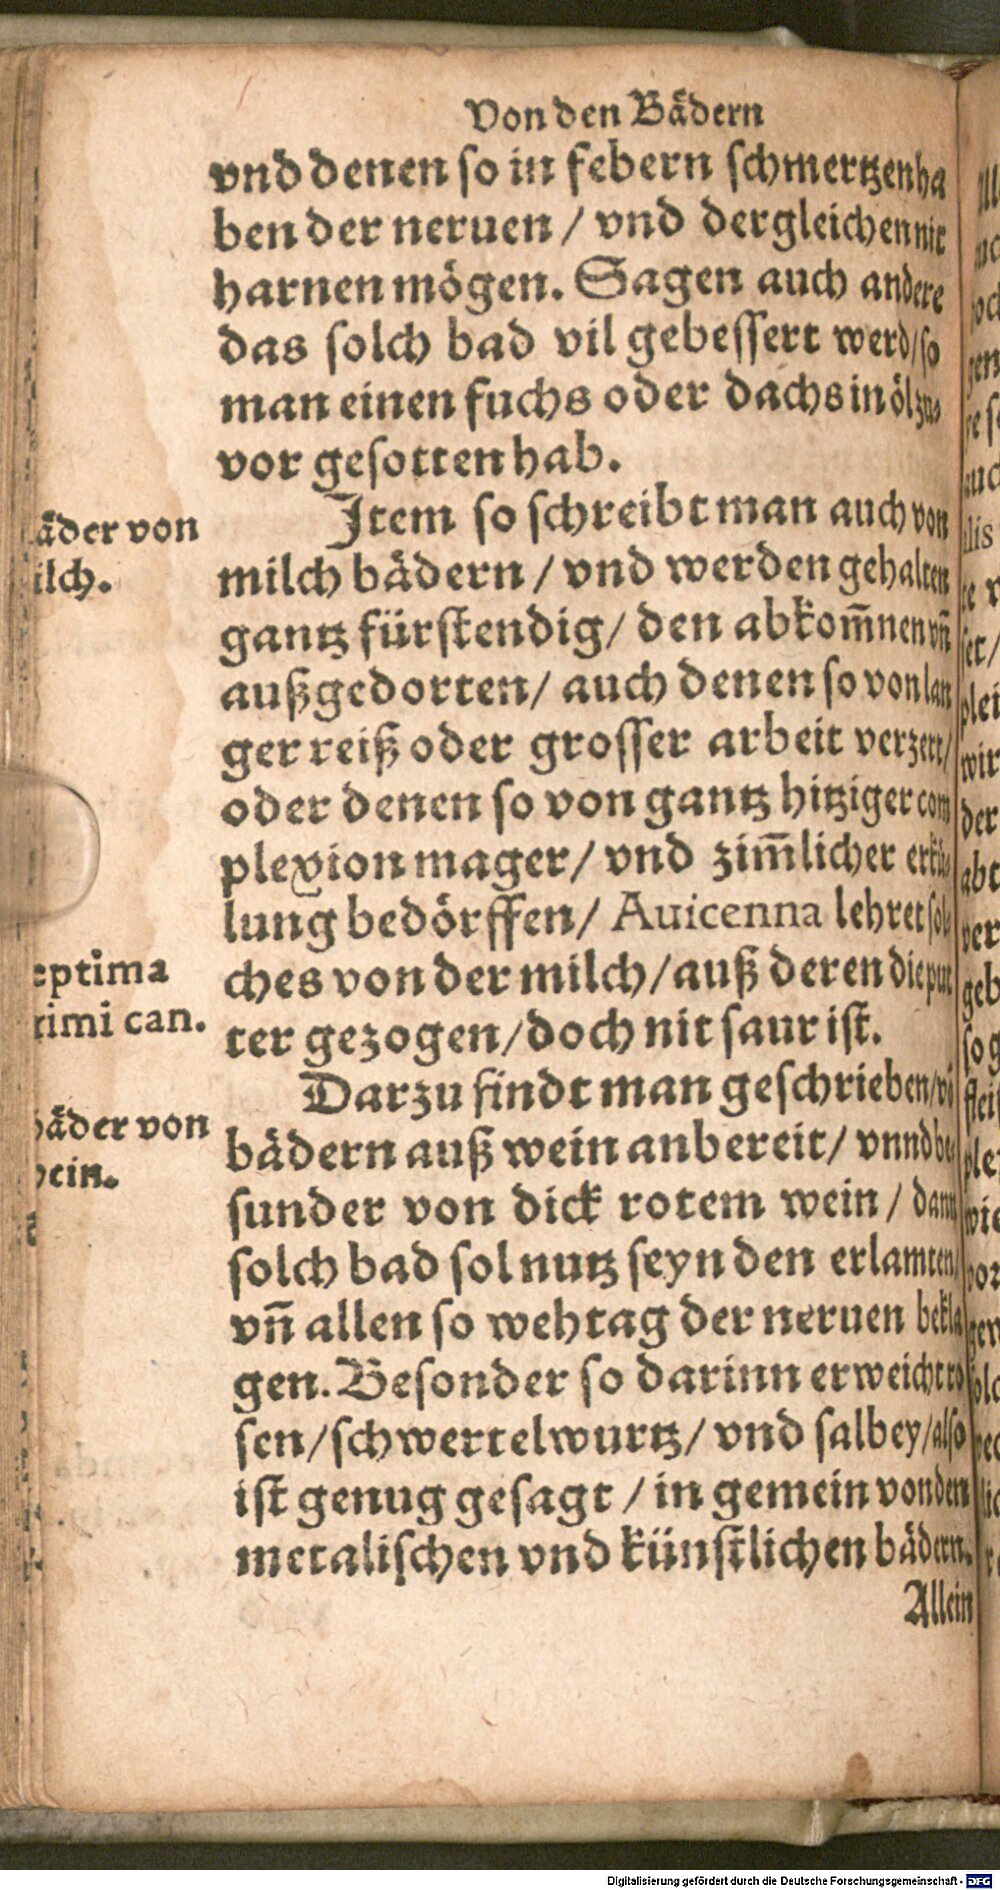 Von den Bädern
vnd denen so in febern schmertzen ha
ben der neruen / vnd dergleichen nit
harnen mögen. Sagen auch andere
das solch bad vil gebessert werd / so
man einen fuchs oder dachs in öl zu⸗
vor gesotten hab.
Item so schreibt man auch von
äder von
milch bädern / vnd werden gehalten
ilch.
gantz fürstendig / den abkom̃nen vñ
außgedorten / auch denen so von lan
ger reiß oder grosser arbeit verzert /
oder denen so von gantz hitziger com
plexion mager / vnd zim̃licher erkü⸗
lung bedörffen / Auicenna lehret sol⸗
eptima
ches von der milch / auß deren die put
rimi can.
ter gezogen / doch nit saur ist.
Darzu findt man geschrieben / võ
äder von
bädern auß wein anbereit / vnnd be⸗
ein.
sunder von dick rotem wein / dann
solch bad sol nutz seyn den erlamten /
vñ allen so wehtag der neruen bekla
gen. Besonder so darinn erweicht ro
sen / schwertelwurtz / vnd salbey / also
ist genug gesagt / in gemein von den
metalischen vnd künstlichen bädern.
Allein
Digitalisierung gefördert durch die Deutsche Forschungsgemeinschaft - DFG